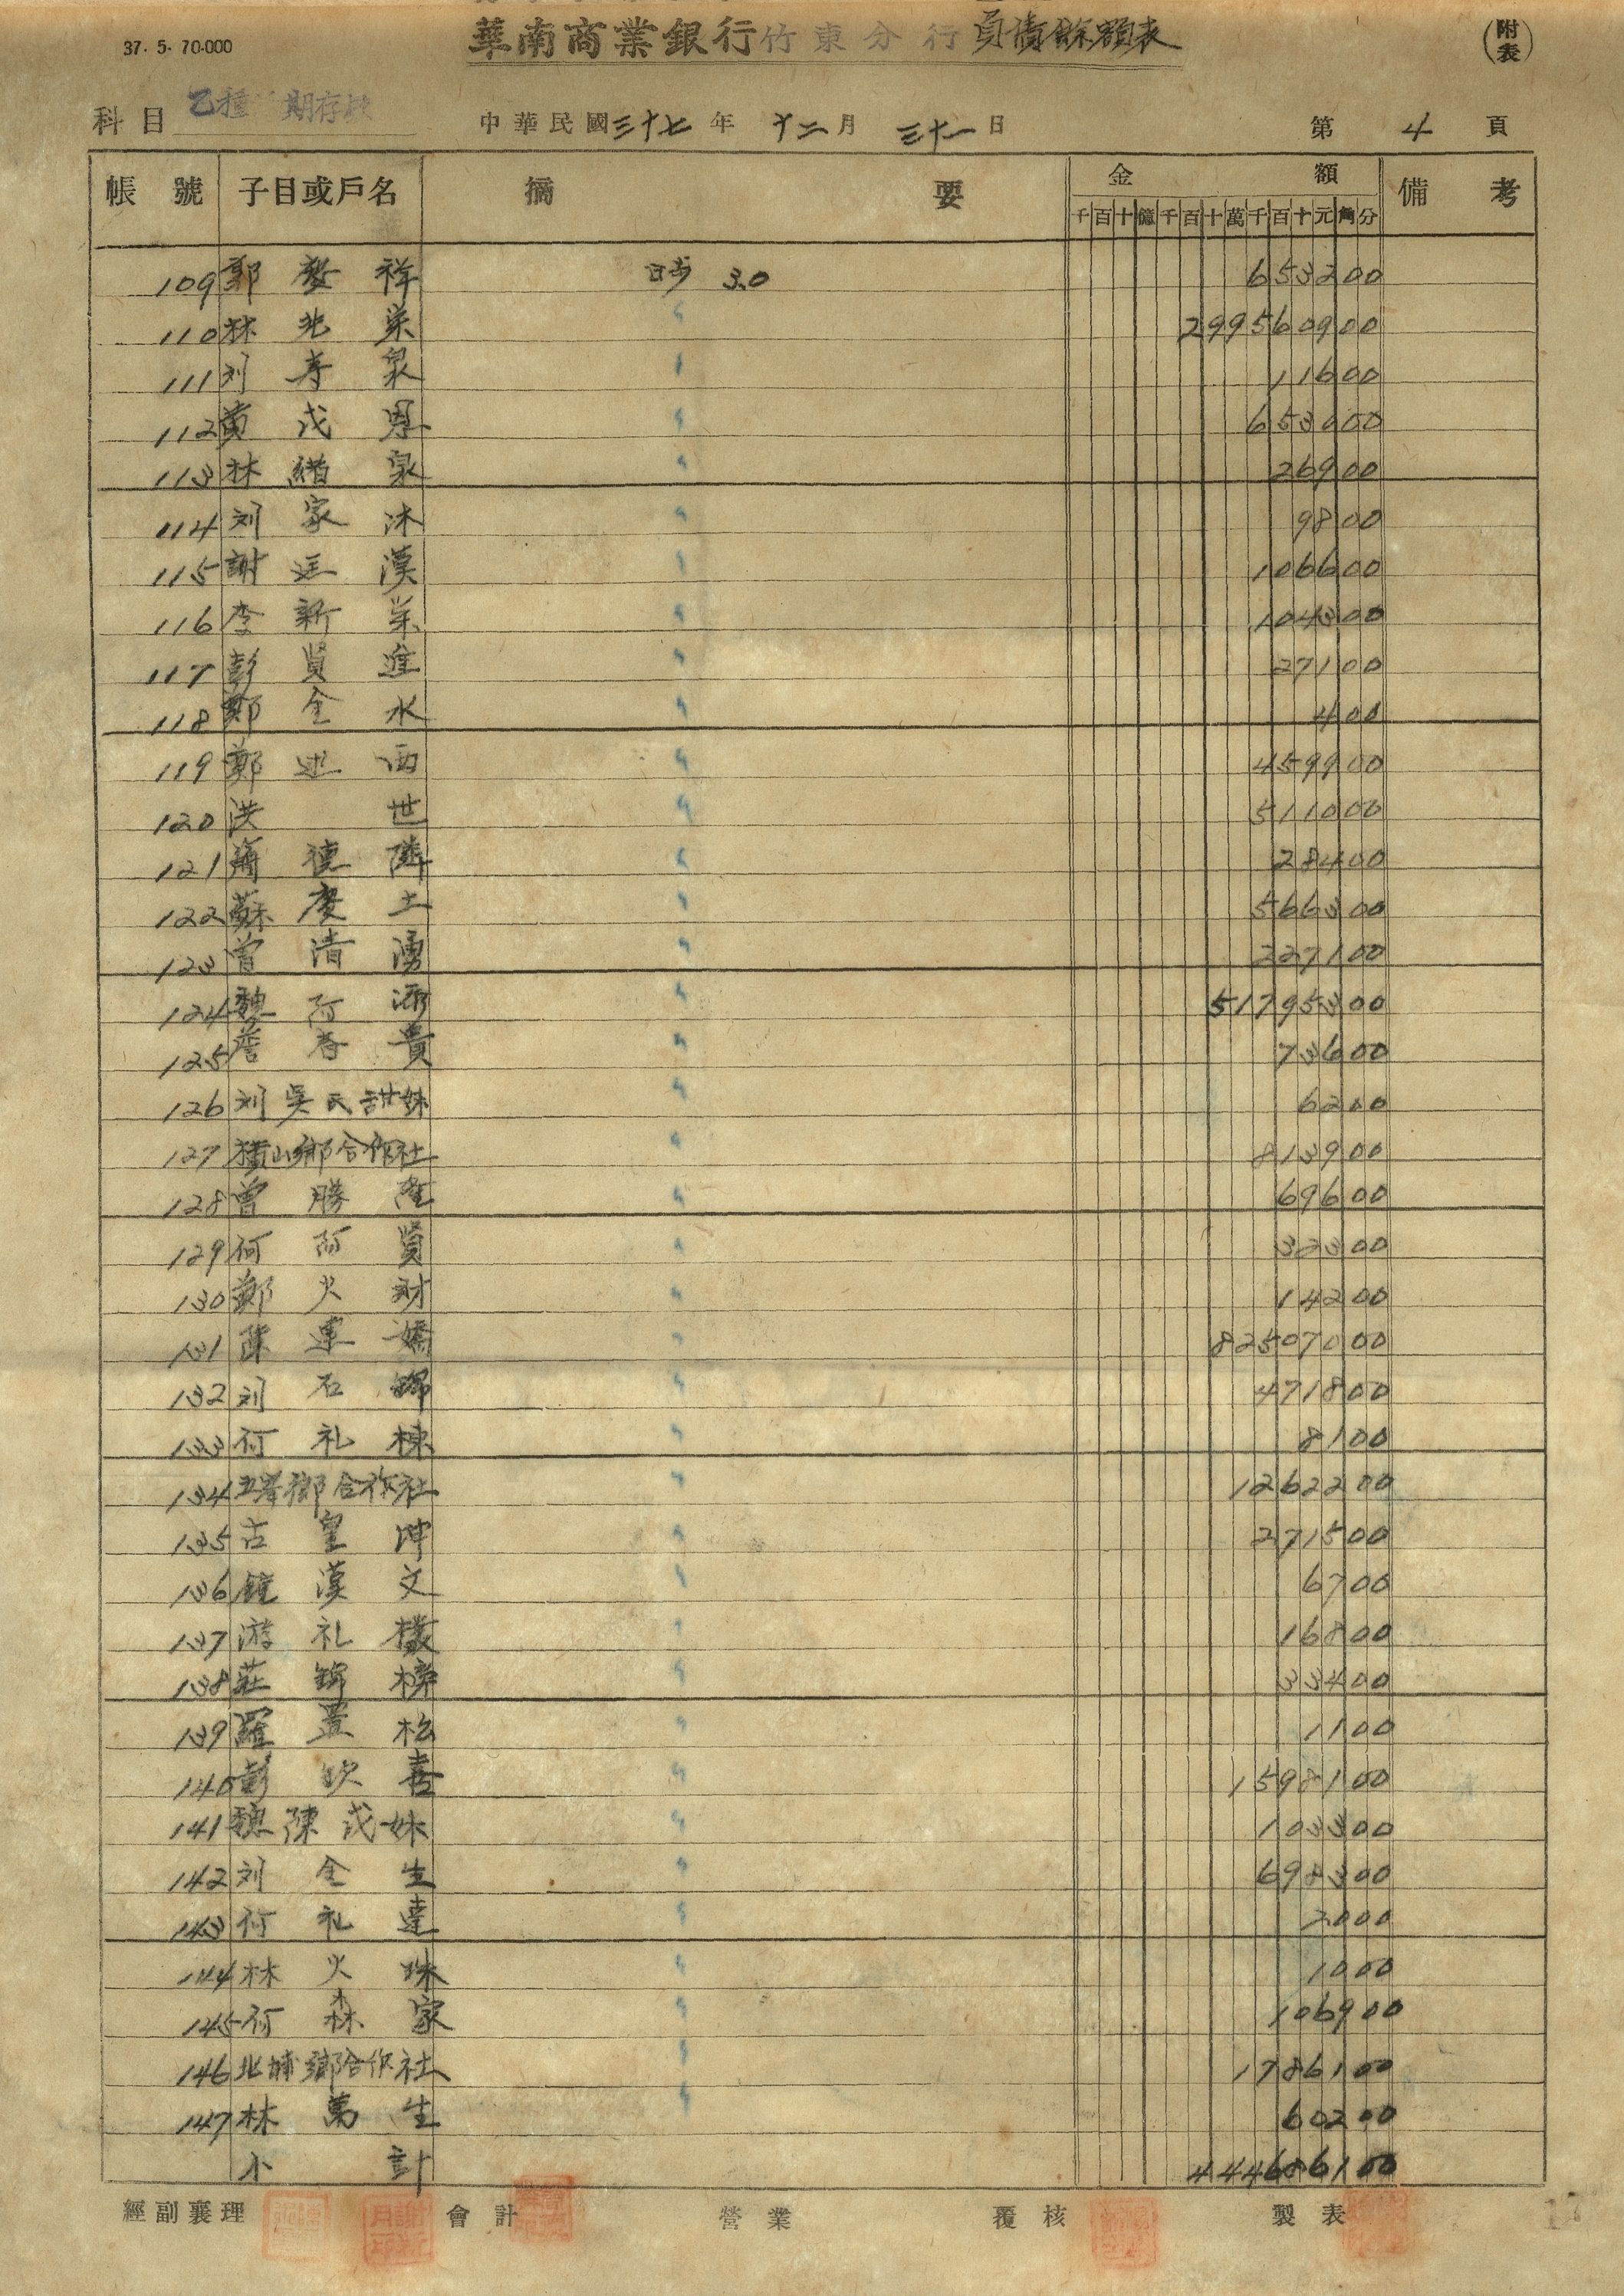 37. 5. 70.000
華南商業銀行竹東分行負債餘額表
(附表)
科目 乙種 期存款
中華民國三十七年 十二月 三十一日
第 4 頁
帳號 子目或戶名 摘要 金額 備考
千百十億千百十萬千百十元角分
109 郭發祥 日步 3.0 653200
110 林兆荣 〃 299560900
111 刘孝泉 〃 11600
112 黄茂恩 〃 653000
113 林緒泉 〃 26900
114 刘家沐 〃 9800
115 謝廷漢 〃 106600
116 李新荣 〃 104300
117 彭賢進 〃 27100
118 鄭金水 〃 400
119 鄭逑西 〃 459900
120 洪世 〃 511000
121 蕭德隣 〃 28400
122 蘇慶土 〃 566300
123 曾清湧 〃 227100
124 魏阿添 〃 51795300
125 詹春貴 〃 73600
126 刘吳氏甜妹 〃 6200
127 横山鄉合作社 〃 813900
128 曾勝隆 〃 69600
129 何阿賢 〃 32300
130 鄭火財 〃 14200
131 陳運嬌 〃 82507000
132 刘石錦 〃 471800
133 何礼棟 〃 8100
134 五峯鄉合作社 〃 1262200
135 古皇坤 〃 271500
136 鏡漢文 〃 6700
137 游礼樸 〃 16800
138 莊錦榜 〃 33400
139 羅置松 〃 1100
140 彭欽喜 〃 1598100
141 魏陳茂妹 〃 103300
142 刘金生 〃 698300
143 何礼達 〃 2000
144 林火珠 〃 1000
145 何森家 〃 106900
146 北埔鄉合作社 〃 1786100
147 林萬生 〃 60200
小計 444686100
經副襄理 會計 營業 覆核 製表